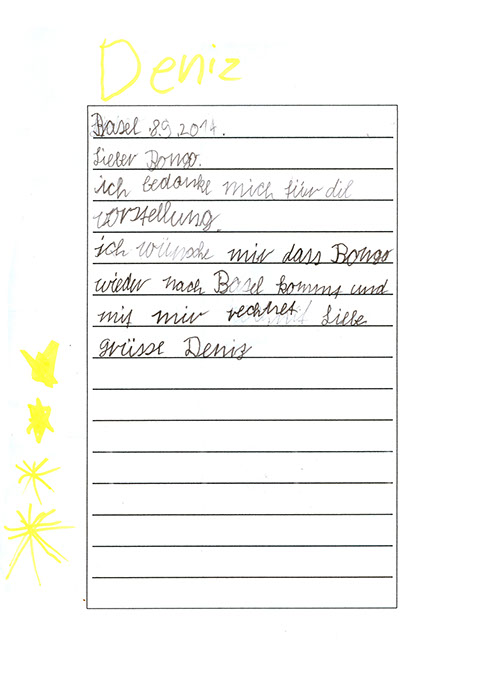 Deniz
Basel 8.9.2014.
Lieber Bongo.
ich bedanke mich für die
vorstellung.
ich wünsche mir dass Bongo
wieder nach Basel kommt und
mit mir rechnet Liebe
grüsse Deniz